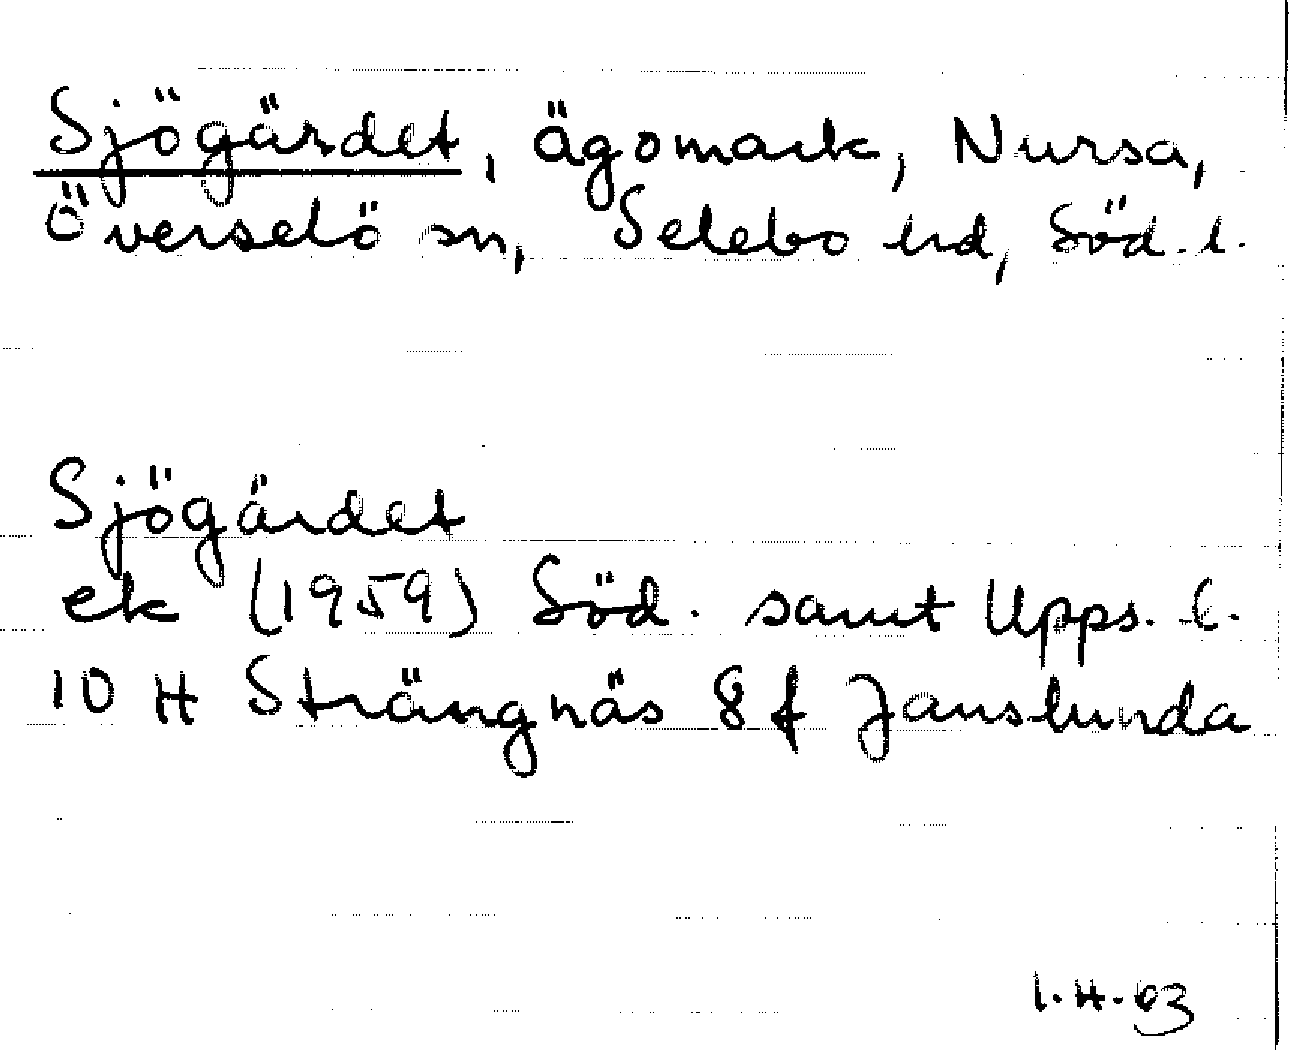 Sjögärdet, ägomark, Nursa,
Överselö sn, Selebo hd, Söd. l.
Sjögärdet
ek (1959) Söd. samt Upps. l.
10 H Strängnäs 8 f Janslunda
I.H.03